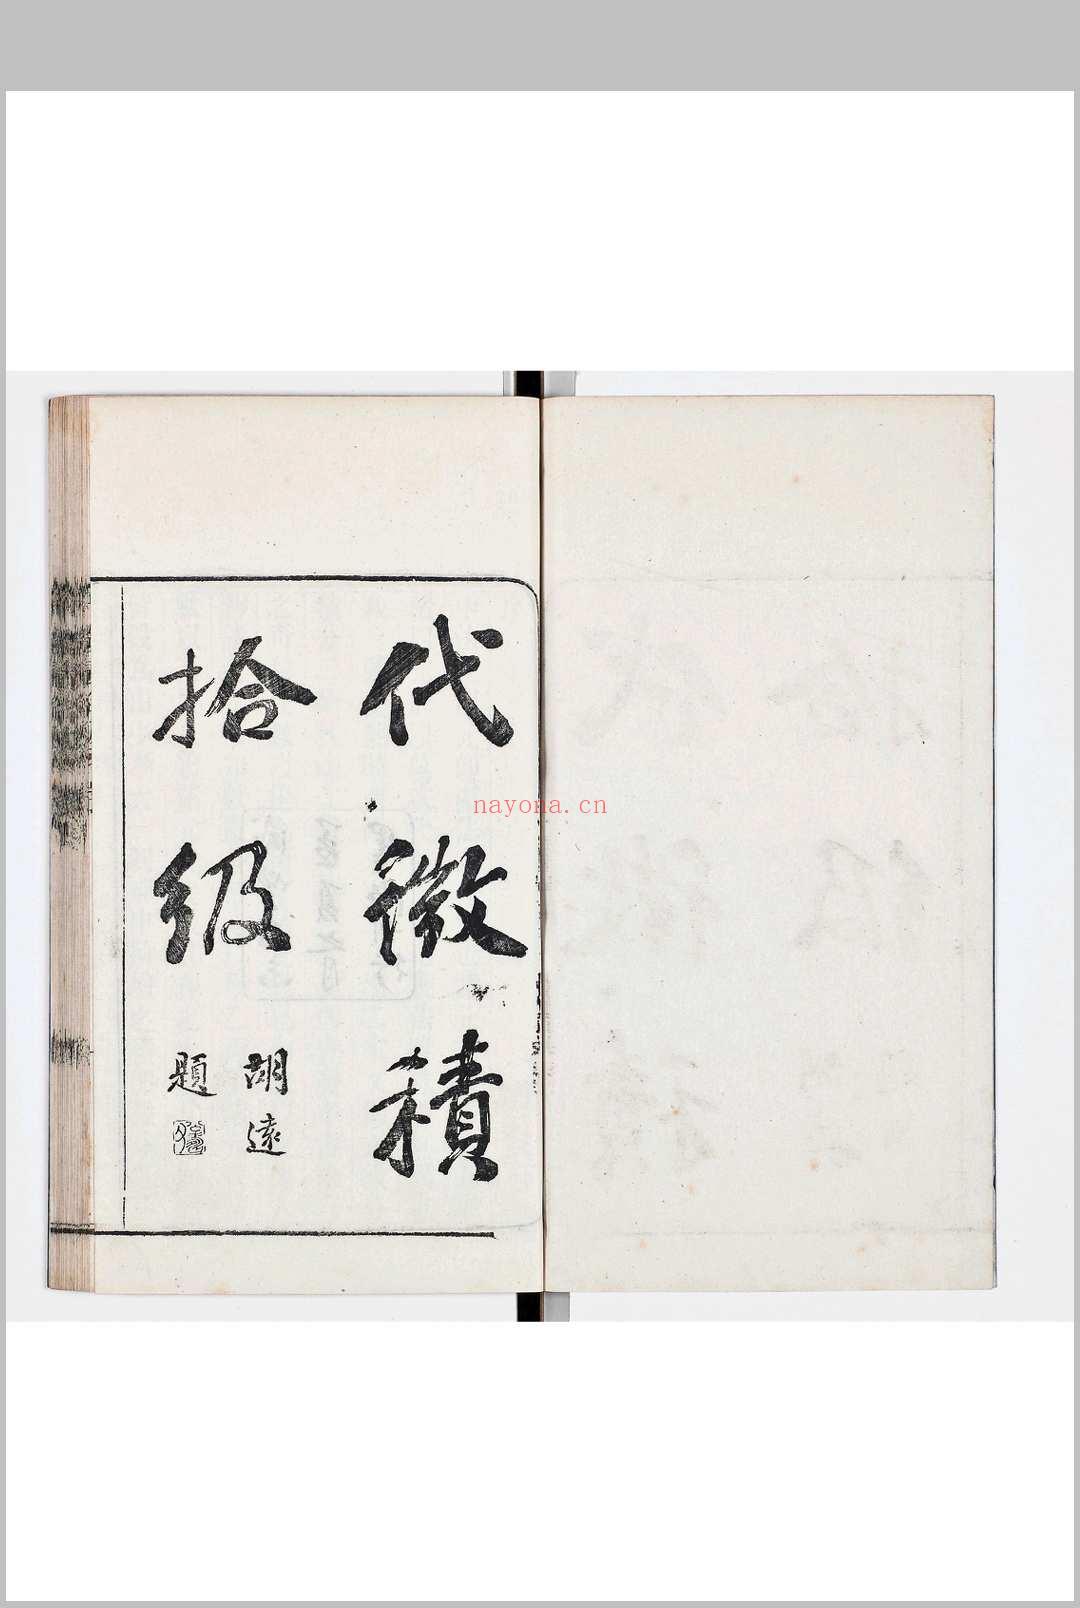 代微積
拾級
胡遠
題
nayona.cn